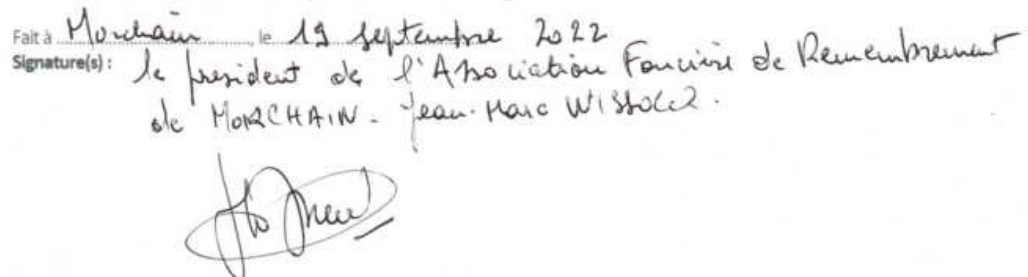 Fait à Morchain, le 19 septembre 2022
Signature(s) : le president de l'Association Foncière de Remembrement
de MORCHAIN - Jean-Marc